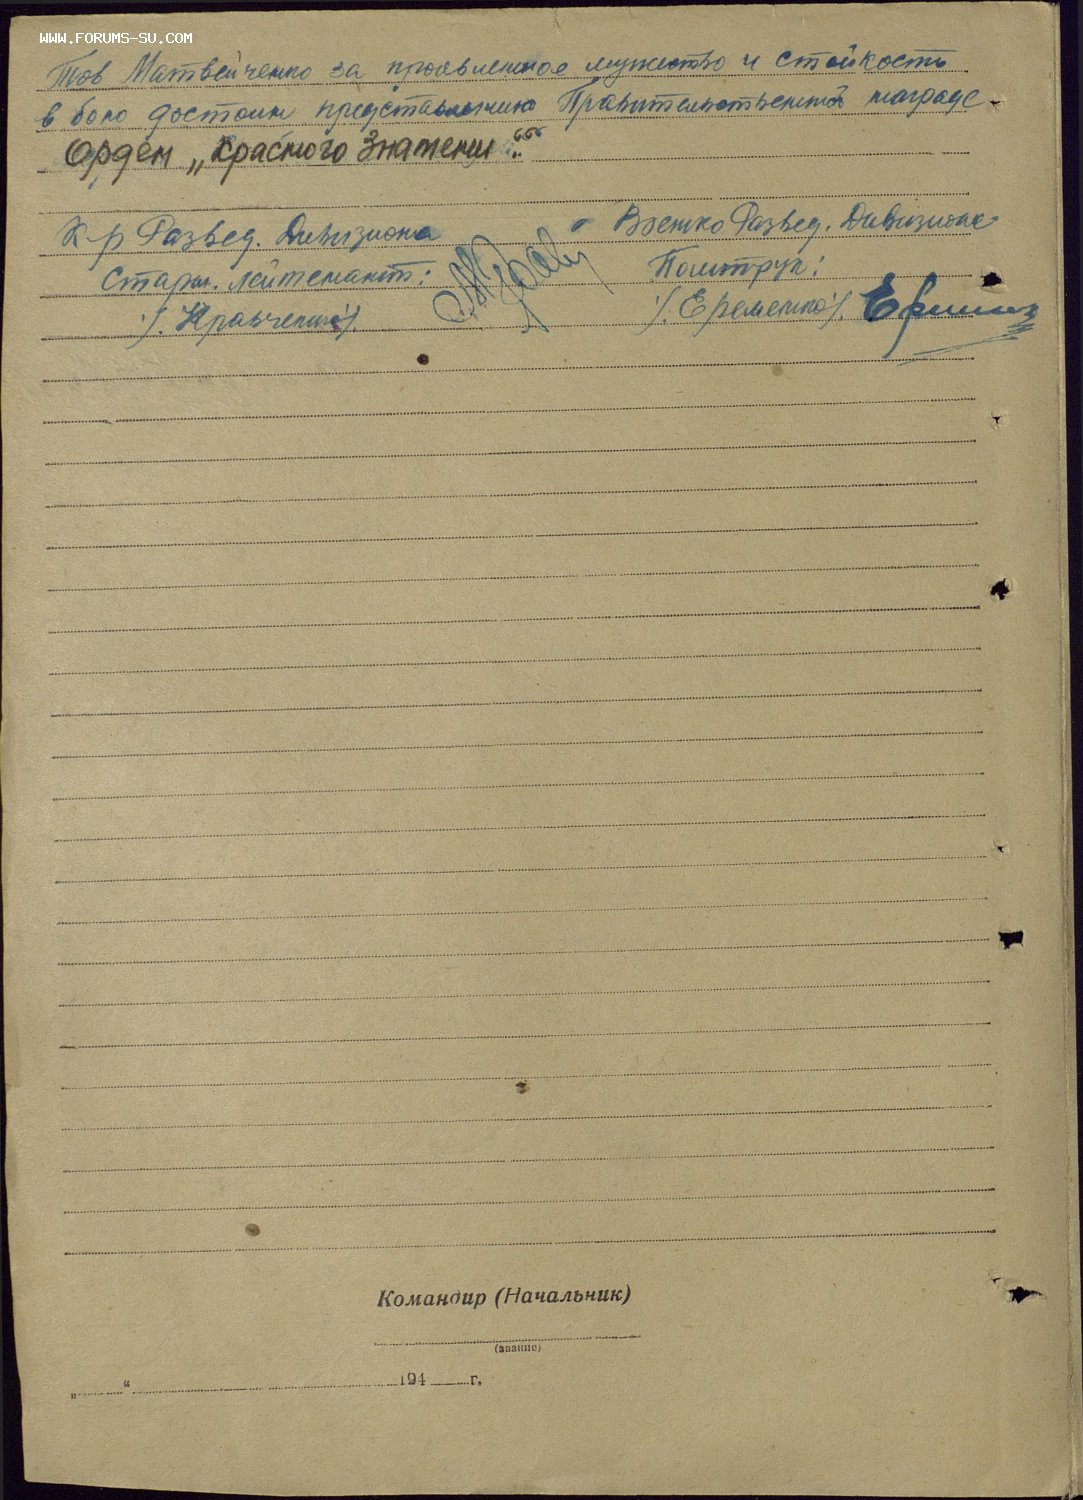 WWW.FORUMS-SU.COM
Тов Матвейченко за проявленное мужество и стойкость
в бою достоин представлению Правительственной награде
Орден „Красного Знамени“.
К-р Развед. Дивизиона
Военко Развед. Дивизиона
Старш. лейтенант:
Политрук:
/. Кравченко /.
/. Еременко /.
Командир (Начальник)
(звание)
„ “ 194 г.